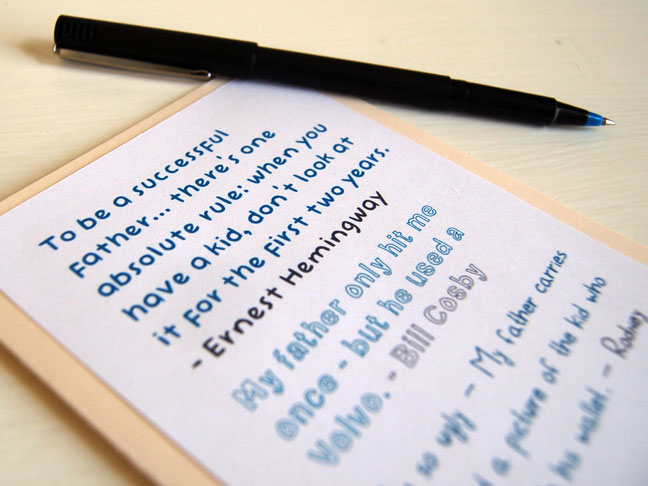 To be a successful
Father... there's one
absolute rule: when you
have a kid, don't look at
it For the First two years.
- Ernest Hemingway
My father only hit me
once - but he used a
Volvo. - Bill Cosby
so ugly – My father carries
a picture of the kid who
his wallet. – Rodney